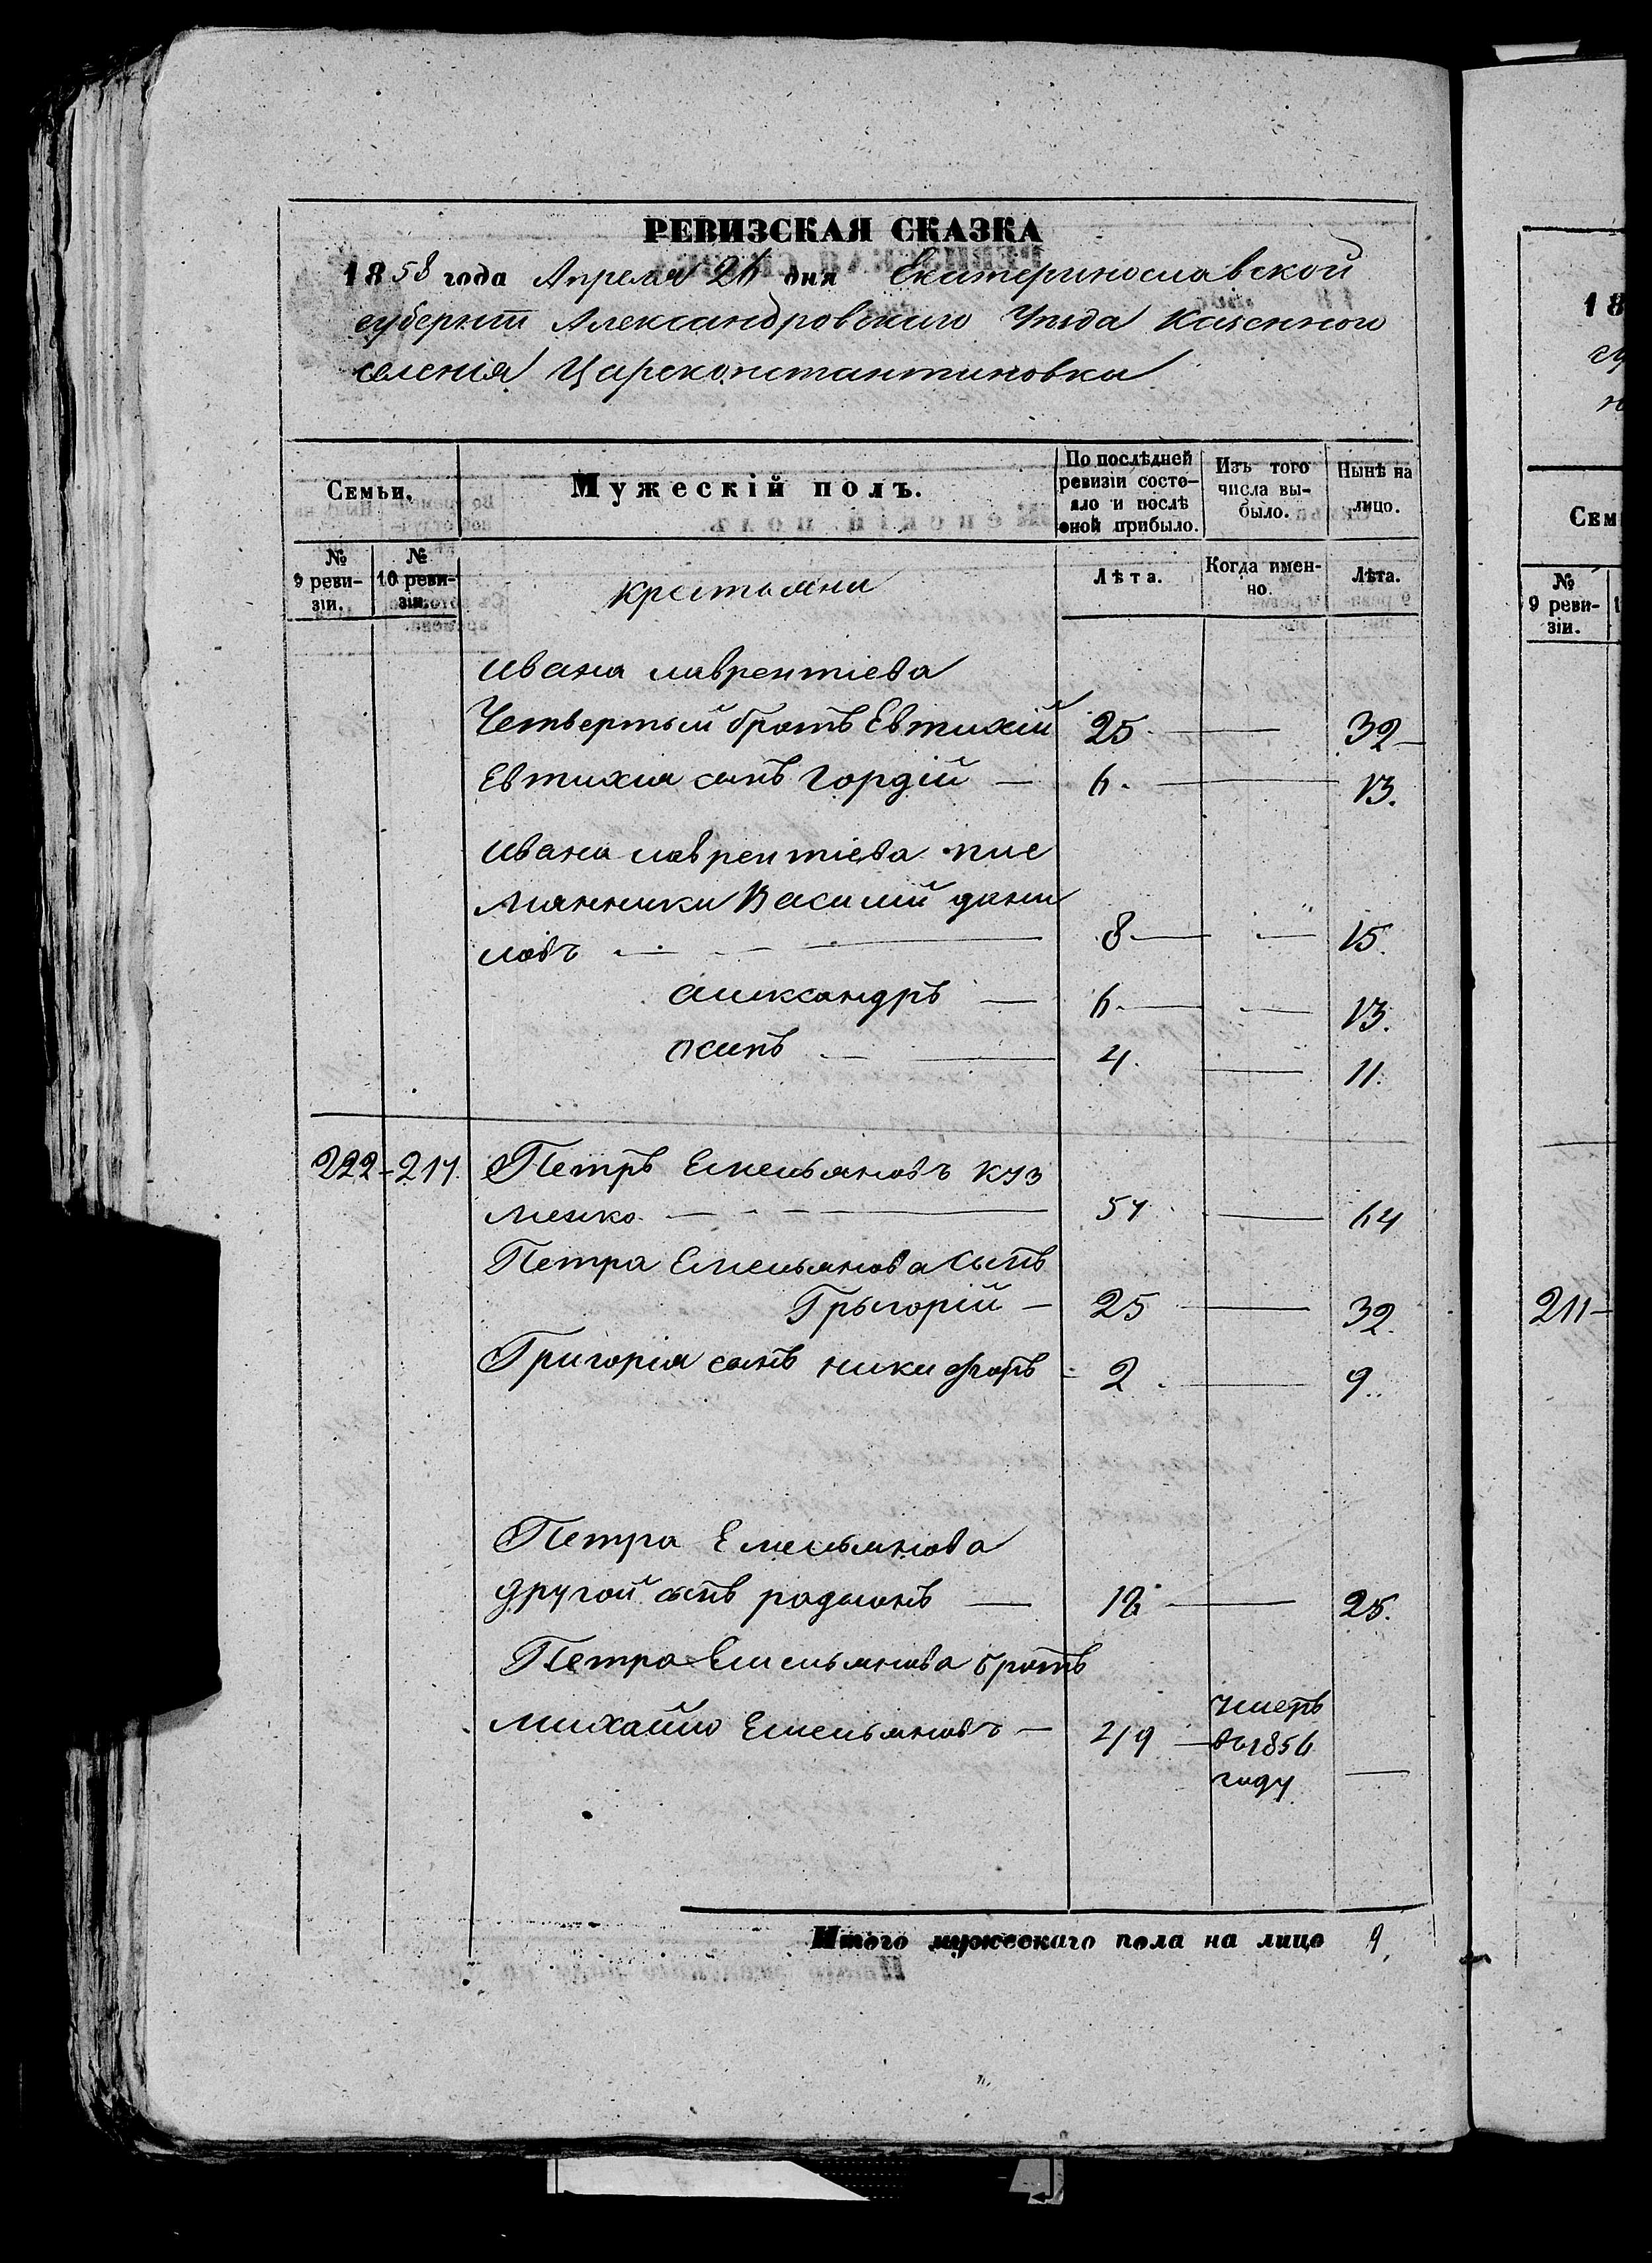 РЕВИЗСКАЯ СКАЗКА
1858 года Апреля 26 дня Екатеринославской
губерніи Александровскаго Уѣзда Казенного
селенія Царсконстантиновки
Семьи.
Мужескій полъ.
По послѣдней ревизіи состо-
яло и послѣ
оной прибыло.
Изъ того
числа вы-
было.
Нынѣ на
лицо.
№
9 реви-
зіи.
№
10 реви-
зіи.
крестьяни
Лѣта.
Когда имен-
но.
Лѣта.
Ивана лаврентіева
Четвертый братъ Евтихій 25 32
Евтихия сынъ Гордій 6. 13.
Ивана лаврентіева пле
мянники Василий дани
ловъ 8 15.
александръ 6 13.
осипъ 4. 11.
222-217. Петръ Емельяновъ куз
менко 57 64
Петра Емельянова сынъ
Грыгорій 25 32.
Григорія сынъ никифоръ 2 9.
Петра Емельянова
другой сынъ радионъ 18 25.
Петра Емельянова братъ
михайло Емельяновъ 49
умеръ
въ 1856
году
Итого мужескаго пола на лицо 9
18
Сем
№
9 реви-
зіи.
211-